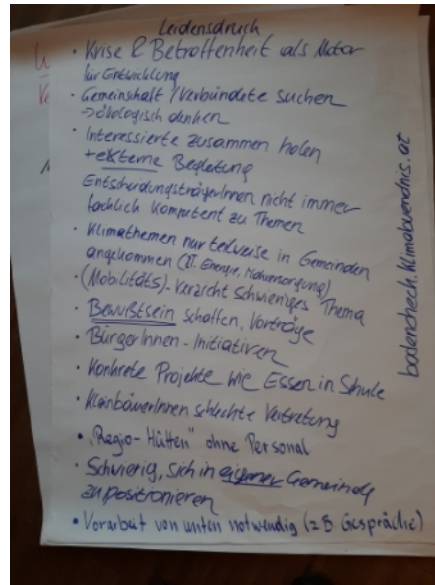 Leidensdruck
• Krise & Betroffenheit als Motor
für Entwicklung
• Gemeinschaft / Verbündete suchen
→ ökologisch denken
• Interessierte zusammen holen
+ externe Begleitung
EntscheidungsträgerInnen nicht immer
fachlich kompetent zu Themen
• Klimathemen nur teilweise in Gemeinden
angekommen (Energie, Nahversorgung)
• (Mobilitäts)-Verzicht schwieriges Thema
• Bewußtsein schaffen, Vorträge
• BürgerInnen-Initiativen
• Konkrete Projekte wie Essen in Schule
• KleinbäuerInnen schlechte Vertretung
• "Regio-Hütten" ohne Personal
• Schwierig, sich in eigener Gemeinde
zu positionieren
• Vorarbeit von unten notwendig (zB Gespräche)
bodencheck.klimabuendnis.at